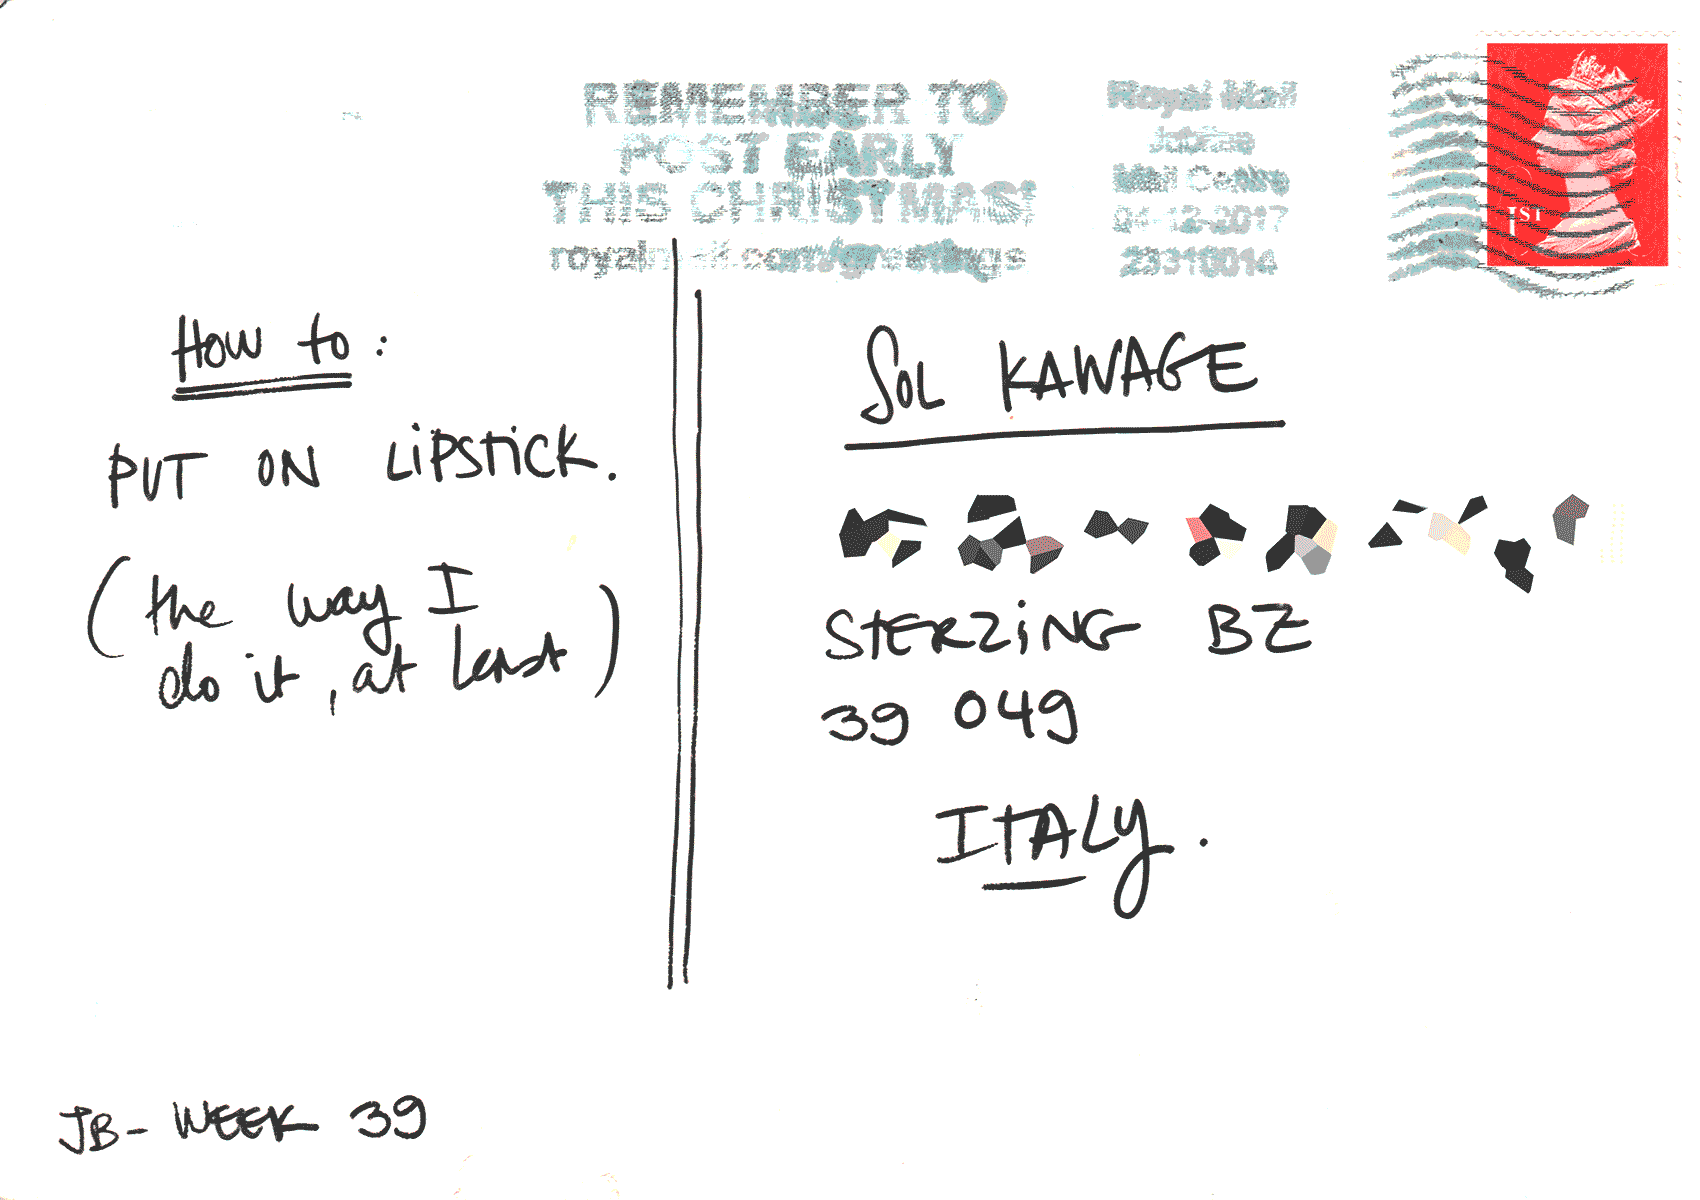 REMEMBER TO
POST EARLY
THIS CHRISTMAS!
royalmail.com/greetings
Royal Mail
Jubilee
Mail Centre
04-12-2017
1ST
How to:
PUT ON LIPSTICK.
(the way I
do it, at least)
JB - WEEK 39
SOL KAWAGE
STERZING BZ
39 049
ITALY.